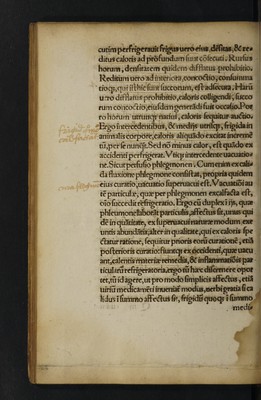 cutim perfrigerauit frigus uero eius, dissitas, & re
ditus caloris ad profundum sunt cõsecuti. Rursus
horum, densitatem quidem difflatus prohibitio.
Reditum uero ad interiora, concoctio, consumma
tioq;, qui isthic sunt succorum, est
uero difflatus prohibitio, caloris colligendi, succo
rum concoctio, eiusdem generãdi fuit occasio. Por
ro horum utrunq; natiui, caloris sequitur auctio.
Ergo intercedentibus, & medijs utrisq;, frigida in
animalis corpore, caloris aliquãdo excitat increme
tũ, per se nunq̃. Sed nõ minus calor, est quãdo ex
accidenti perfrigerat. Vtiq; intercedente uacuatio
ne. Sicut perfusio phlegmonen. Cum enim ex cali
da fluxione phlegmone consistat, propria quidem
eius curatio, uacuatio superuacui est. Vacuatiõi au
tẽ particulæ, quæ per phlegmonen excalfacta est,
oĩo succedit refrigeratio. Ergo cũ duplex ijs, quæ
phlegmone laborãt particulis, affectus sit, unus qui
dẽ in quãtitate, ex superuacui
untis abundãtia: alter in qualitate, qui ex caloris spe
ctatur ratione, sequitur prioris
posterioris curatio: fiuntq; ex accidenti, quæ uacu
ant, calentis materiæ remedia, & inflammatiõis par
ticularũ refrigeratoria. ergo
tet, tũ id agere, ut pro modo simplicis affectus, etiã
uiriũ medicamẽti inueniat̃ modus, uerbi gratia si ca
lidus ĩ summo affectus sit, frigidũ quoq; ĩ summo
medi-